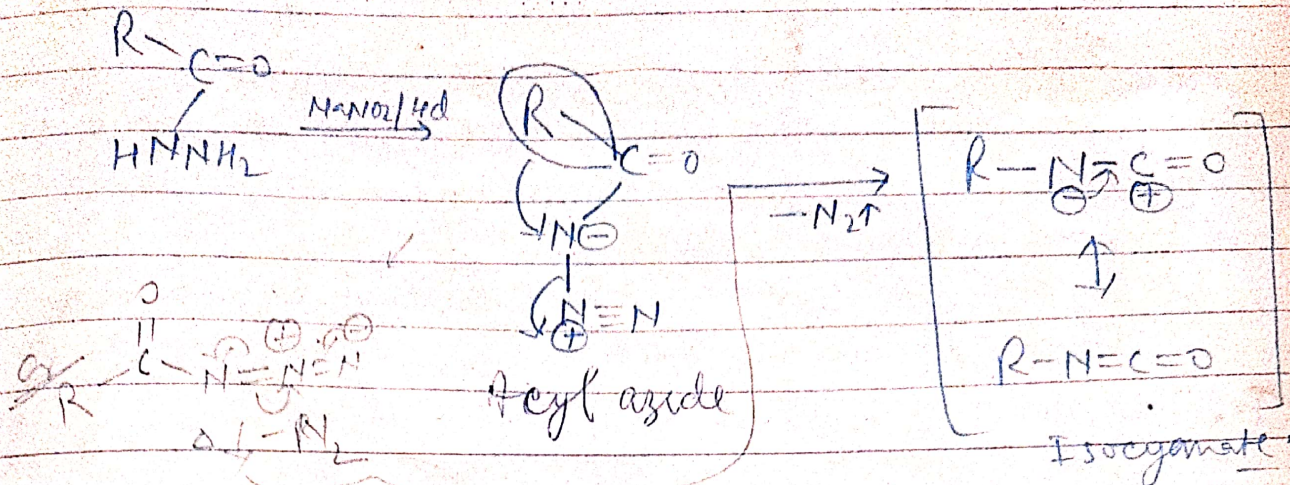 R
C=O
HNNH2
NaNO2/Hcl
R
C=O
N⊖
N≡N
⊕
Acyl azide
-N2↑
R-N-C=O
⊖ ⊕
R-N=C=O
Isocyanate
O
or R C N=N=N
⊕ ⊖
Δ -N2